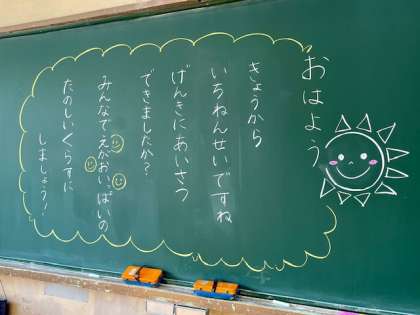 おはよう
きょうから
いちねんせいですね
げんきにあいさつ
できましたか？
みんなでえがおいっぱいの
たのしいくらすに
しましょう！